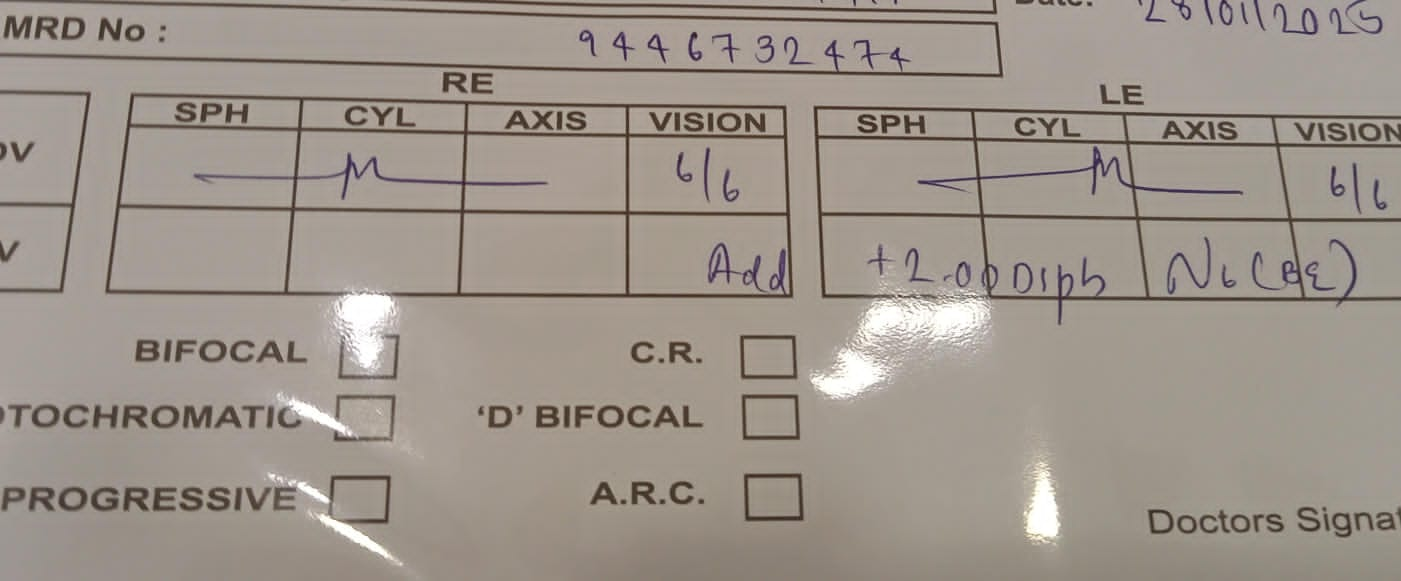 28/01/2025
MRD No : 9446732474
RE LE
SPH CYL AXIS VISION SPH CYL AXIS VISION
6/6 6/6
V Add +2.00 Dsph N6 (BE)
BIFOCAL C.R.
TOCHROMATIC 'D' BIFOCAL
PROGRESSIVE A.R.C.
Doctors Signat